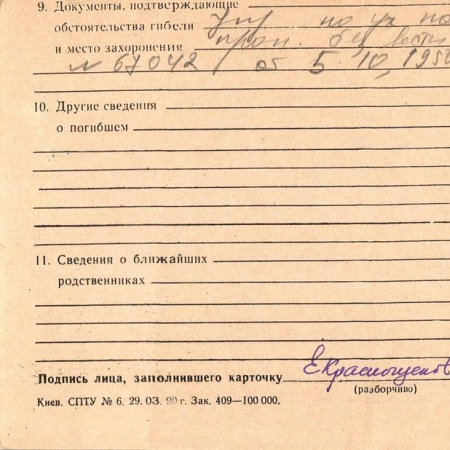 9. Документы, подтверждающие
обстоятельства гибели Упр по уч по
и место захоронения проп. без вести
№ 67042 от 5.10.195
10. Другие сведения
о погибшем
11. Сведения о ближайших
родственниках
Подпись лица, заполнившего карточку ЕКраснощеков
(разборчиво)
Киев. СПТУ № 6. 29. 03. 90 г. Зак. 409—100 000.